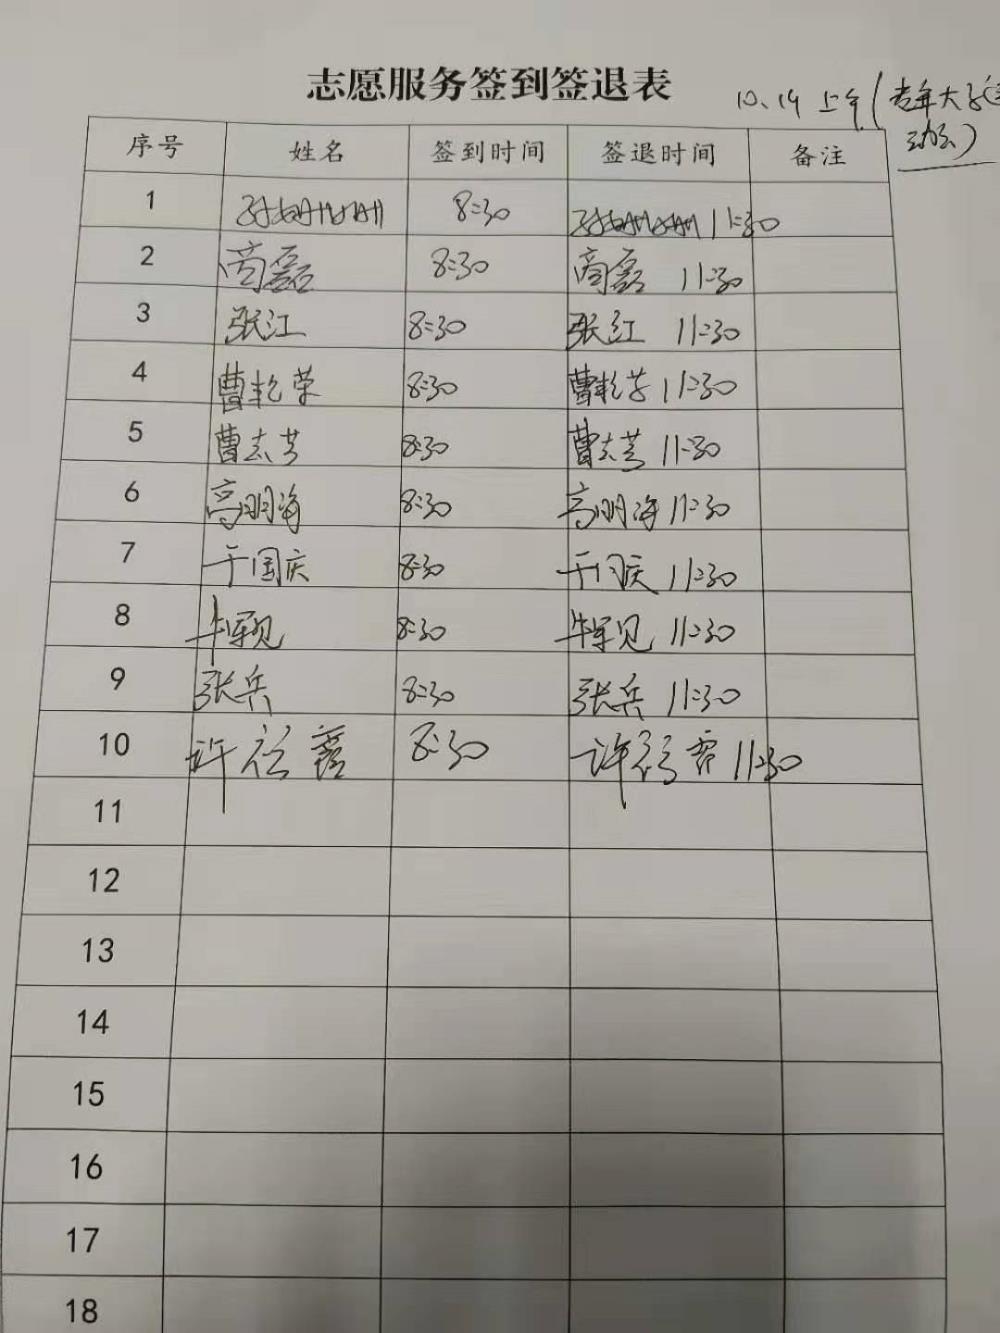 志愿服务签到签退表
10、14 上午(老年大学运
动会)
序号 姓名 签到时间 签退时间 备注
1 8:30 11:30
2 商磊 8:30 商磊 11:30
3 张江 8:30 张江 11:30
4 曹乾荣 8:30 曹乾芳 11:30
5 曹志芳 8:30 曹志芳 11:30
6 高明海 8:30 高明海 11:30
7 于国庆 8:30 于国庆 11:30
8 牛军见 8:30 牛军见 11:30
9 张兵 8:30 张兵 11:30
10 许 8:30 许 11:30
11
12
13
14
15
16
17
18